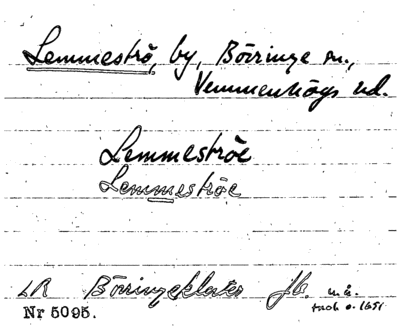 Lemmeströ, by, Börringe sn.,
Vemmenhögs hd.
Lemmeströe
Lemmeströe
LR Börringekloster Jb.
Nr 5095.